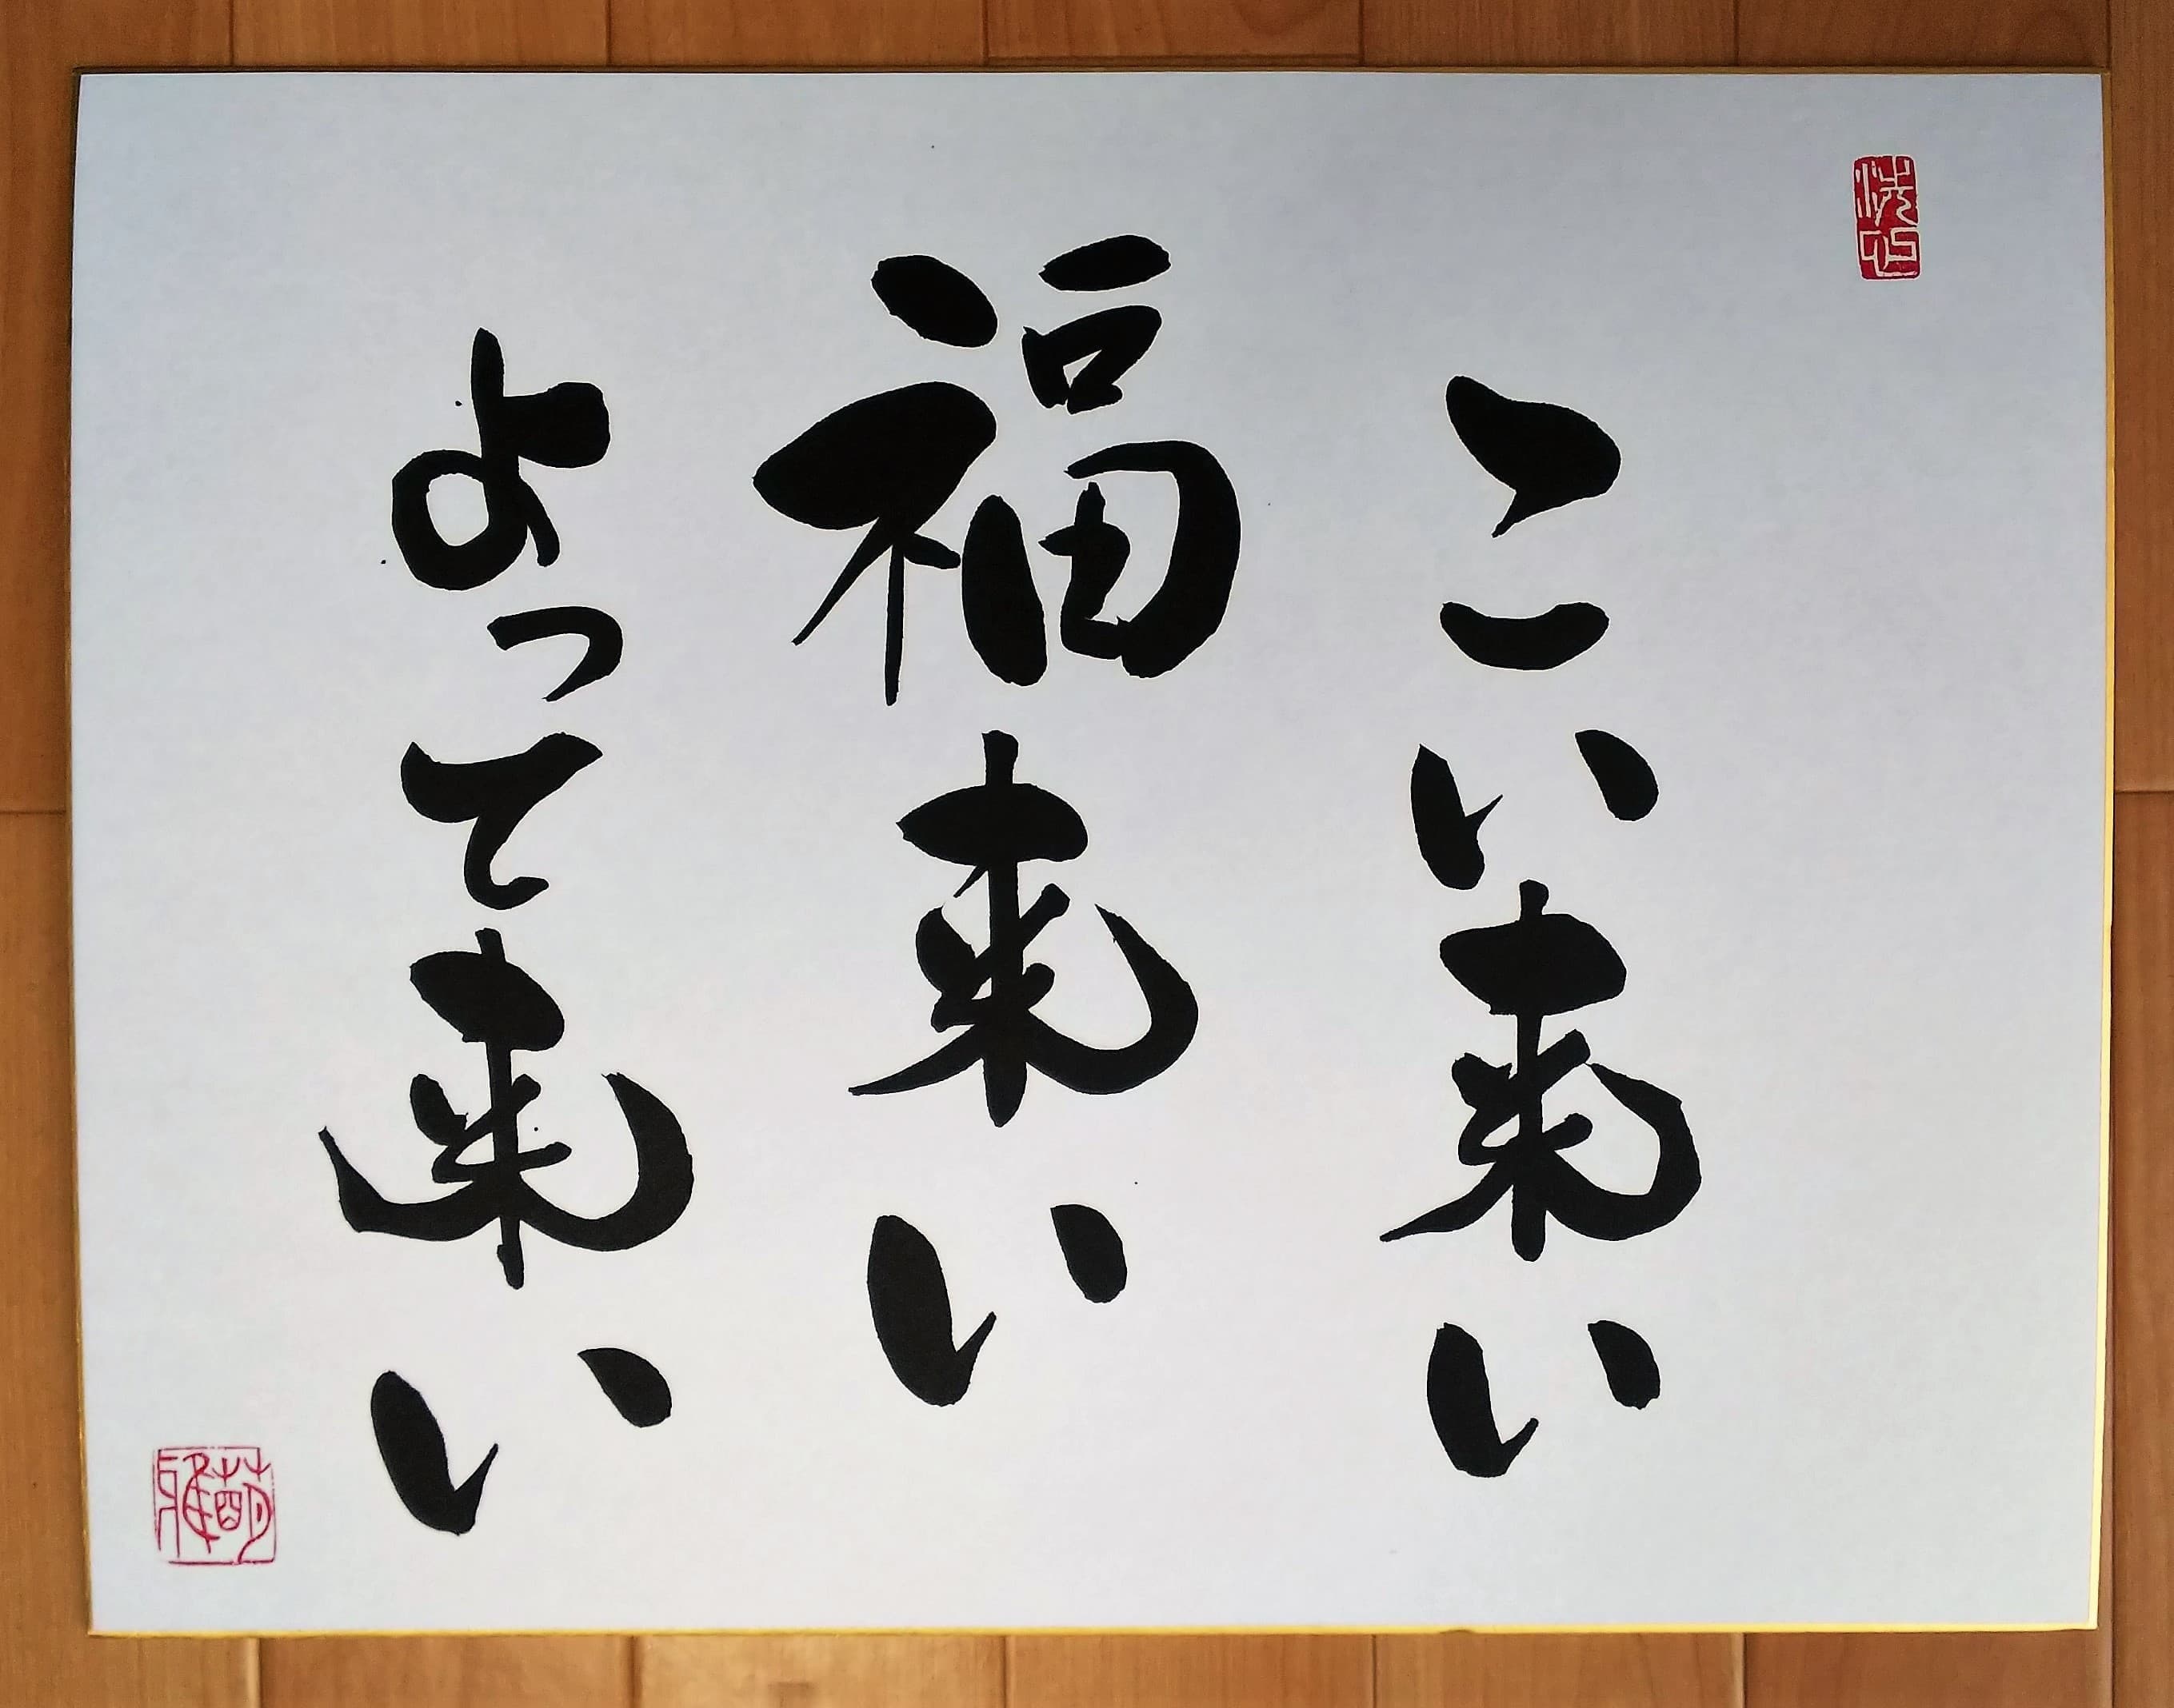 こい来い
福来い
よって来い